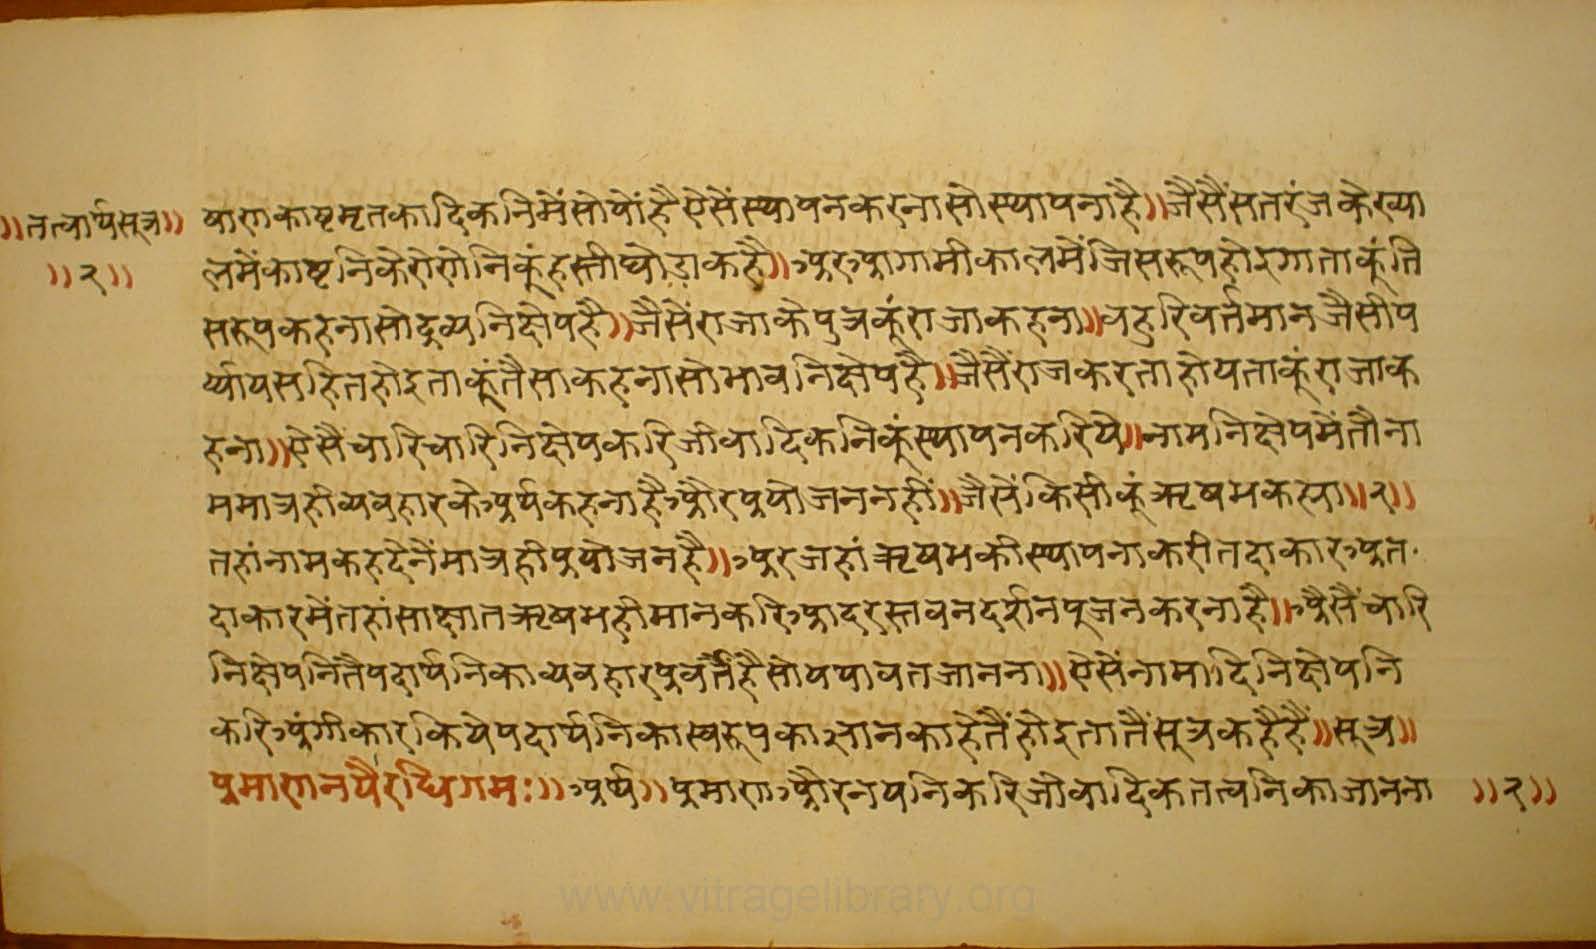 ॥तत्वार्थसूत्र॥
॥२॥
षाणकाष्टमृतकादिकनिमेंसोयोंहैऐसेंस्थापनकरनासोस्थापनाहै॥जैसैंसतरंजकेख्या
लमैंकाष्टनिकेगोटोनिकूंहस्तीघोड़ाकहै॥अरुआगामीकालमेंजिसरूपहोइगाताकूंति
सरूपकहनासोद्रव्यनिक्षेपहै॥जैसेंराजाकेपुत्रकूंराजाकहना॥वहुरिवर्त्तमानजैसीप
र्य्यायसहितहोइताकूंतैसाकहनासोभावनिक्षेपहै॥जैसैंराजकरताहोयताकूंराजाक
हना॥ऐसैंचारिचारिनिक्षेपकरिजीवादिकनिकूंस्थापनकरिये॥नामनिक्षेपमेंतौना
ममात्रहीव्यवहारकेअर्थकहनाहैऔरप्रयोजननहीं॥जैसेंकिसीकूंऋषभकह्या॥२॥
तहांनामकहदेनैंमात्रहीप्रयोजनहै॥अरजहांऋषभकीस्थापनाकरीतदाकारअत
दाकारमेंतहांसाक्षातऋषभहीमानकरिआदरस्तवनदर्शनपूजनकरनाहै॥ऐसैंचारि
निक्षेपनितैंपदार्थनिकाव्यवहारप्रवर्त्तैहैसोयथावतजानना॥ऐसेंनामादिनिक्षेपनि
करिअंगीकारकियेपदार्थनिकास्वरूपकाज्ञानकाहेतैंहोइतातैंसूत्रकहैहैं॥सूत्र॥
प्रमाणनयैरधिगमः॥अर्थ॥प्रमाणऔरनयनिकरिजीवादिकतत्वनिकाजानना
॥२॥
www.vitragelibrary.org